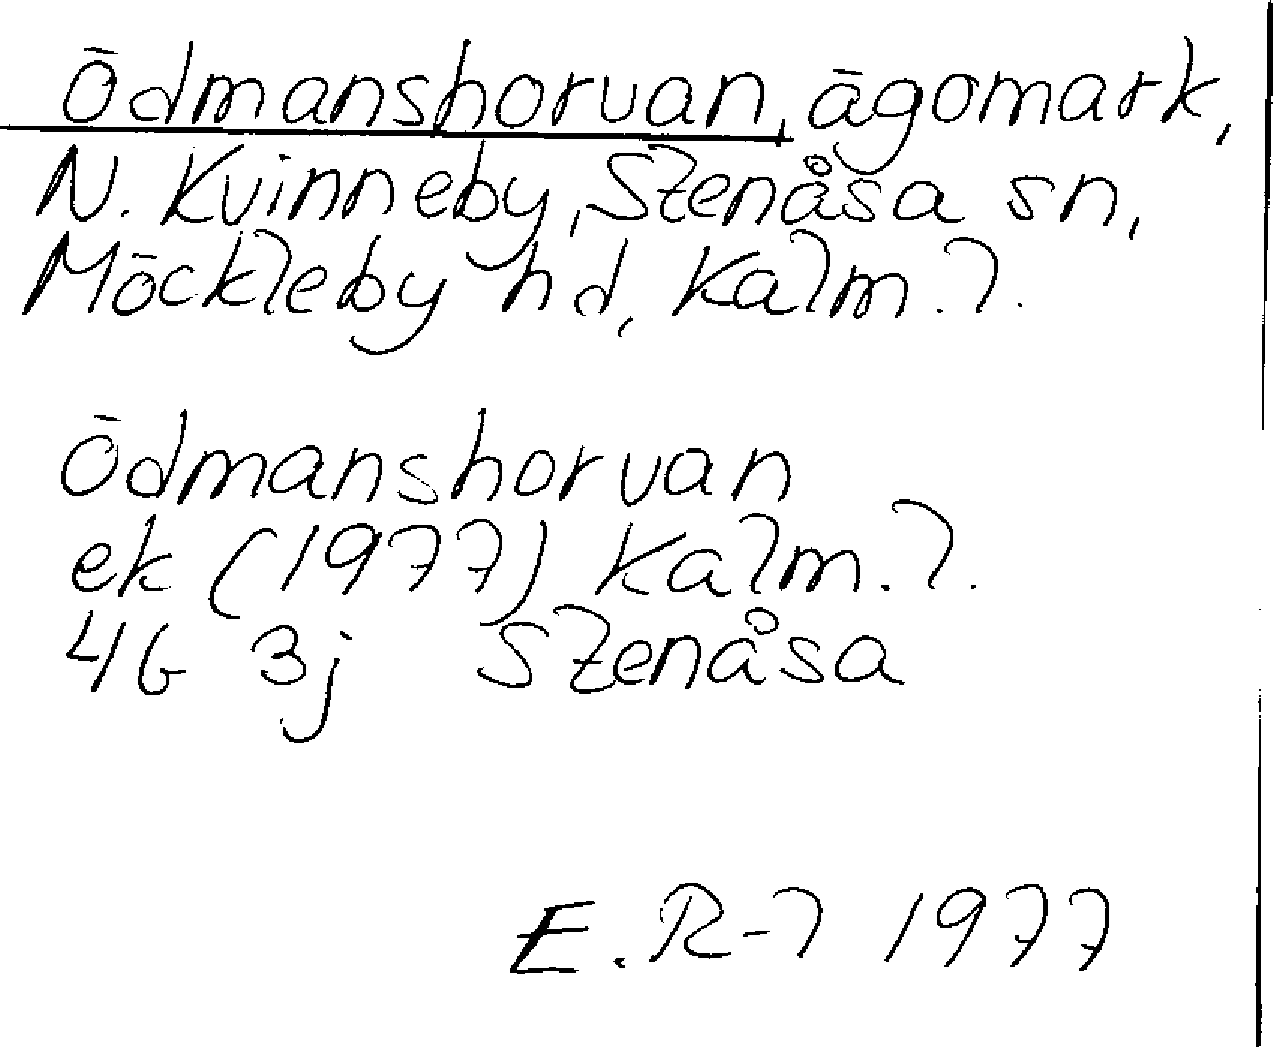 Ödmanshorvan, ägomark,
N. Kvinneby, Stenåsa sn,
Möckleby hd, Kalm. l.
Ödmanshorvan
ek (1977) Kalm. l.
4G 3j Stenåsa
E. R-l 1977